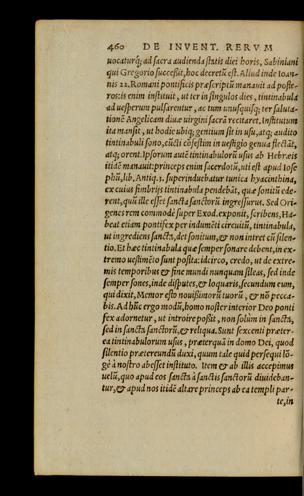 460 DE INVENT. RERVM
uocaturq́; ad sacra audienda statis diei horis, Sabiniani
qui Gregorio successit, hoc decretũ est. Aliud inde Ioan-
nis 22. Romani pontificis præscriptũ manauit ad poste-
ros: is enim instituit, ut ter in singulos dies, tintinabula
ad uesperum pulsarentur, ac tum unusquisq; ter saluta-
tionẽ Angelicam diuæ uirgini sacrã recitaret. Institutum
ita mansit, ut hodie ubiq; gentium sit in usu, atq; audito
tintinabuli sono, cũcti cõfestim in uestigio genua flectãt,
atq; orent. Ipsorum autẽ tintinabulorũ usus ab Hebræis
itidẽ manauit: princeps enim sacerdotũ, uti est apud Iose
phũ, lib. Antiq. 3. superinduebatur tunica hyacinthina,
ex cuius fimbrijs tintinabula pendebãt, quæ sonitũ ede-
rent, quũ ille esset sancta sanctorũ ingressurus. Sed Ori-
genes rem commodè super Exod. exponit, scribens, Ha-
beat etiam pontifex per indumẽti circuitũ, tintinabula,
ut ingrediens sancta, det sonitum, & non intret cũ silen-
tio. Et hæc tintinabula quæ semper sonare debent, in ex-
tremo uestimẽto sunt posita: idcirco, credo, ut de extre-
mis temporibus & fine mundi nunquam sileas, sed inde
semper sones, inde disputes, & loquaris, secundum eum,
qui dixit, Memor esto nouissimorũ tuorũ, & nõ pecca-
bis. Ad hũc ergo modũ, homo noster interior Deo ponti
fex adornetur, ut introire possit, non solùm in sancta,
sed in sancta sanctorũ, & reliqua. Sunt sexcenti præter-
ea tintinabulorum usus, præterquã in domo Dei, quod
silentio prætereundũ duxi, quum tale quid persequi lõ-
gè à nostro abesset instituto. Item & ab illis accepimus
uelũ, quo apud eos sancta à sanctis sanctorũ diuideban-
tur, & apud nos itidẽ altare princeps ab ea templi par-
te, in